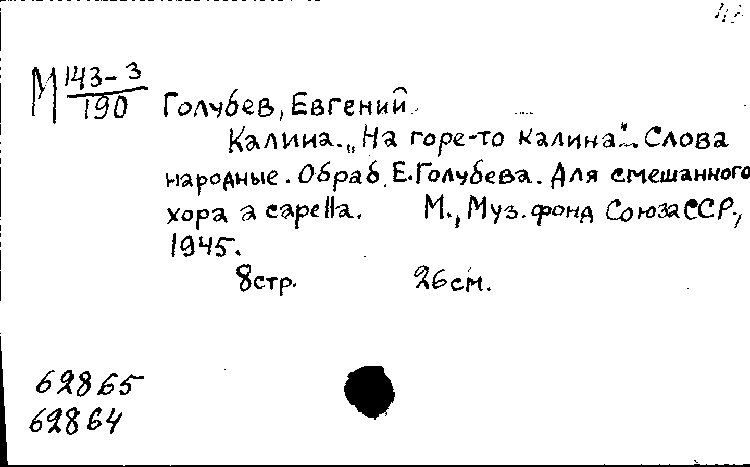 М 143-3
190
Голубев, Евгений.
Калина. „На горе-то калина". Слова
народные. Обраб. Е. Голубева. Для смешанного
хора a capella. М., Муз. фонд Союза ССР.,
1945.
8стр. 26см.
62865
62864